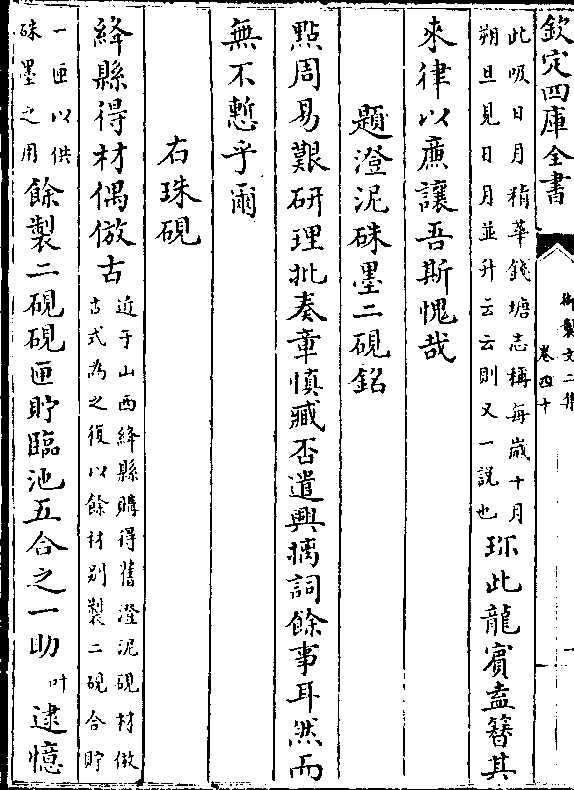 欽定四庫全書
御製文二集
卷四十
此吸日月精華錢塘志稱每歲十月
朔旦見日月並升云云則又一說也
珎此龍賓盍簪其
來律以廉讓吾斯愧哉
題澄泥硃墨二硯銘
點周易艱研理批奏章慎臧否遣興摛詞餘事耳然而
無不慙乎爾
右珠硯
絳縣得材偶倣古
近于山西絳縣購得舊澄泥硯材倣
古式為之復以餘材别製二硯合貯
一匣以供
硃墨之用
餘製二硯硯匣貯臨池五合之一助叶逮憶